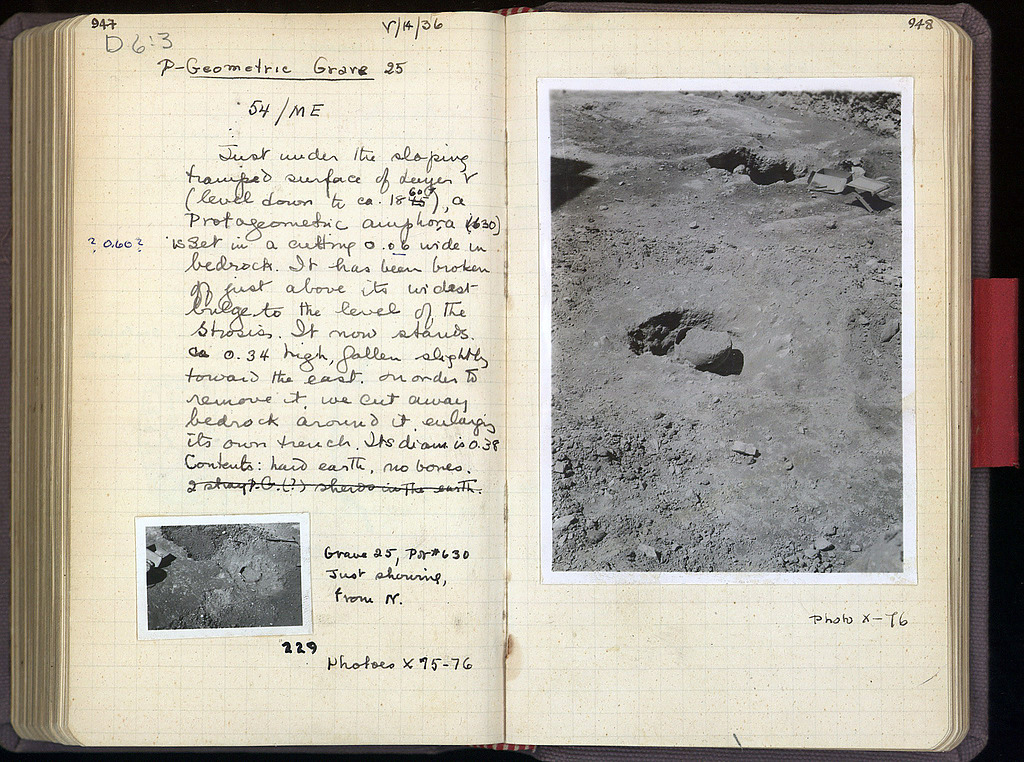 947
V/14/36
D 6:3
P-Geometric Grave 25
54/ME
Just under the sloping
tramped surface of layer V
(level down to ca. 18 60), a
Protogeometric amphora (630)
? 0.60? is set in a cutting 0.06 wide in
bedrock. It has been broken
off just above its widest
bulge to the level of the
strosis. It now stands
ca 0.34 high, fallen slightly
toward the east. In order to
remove it, we cut away
bedrock around it enlarging
its own trench. Its diam is 0.38
Contents: hard earth, no bones.
2 stray P.G.(?) sherds in the earth.
Grave 25, Pot #630
Just showing,
from N.
229
Photoes X 75-76
948
Photo X-76